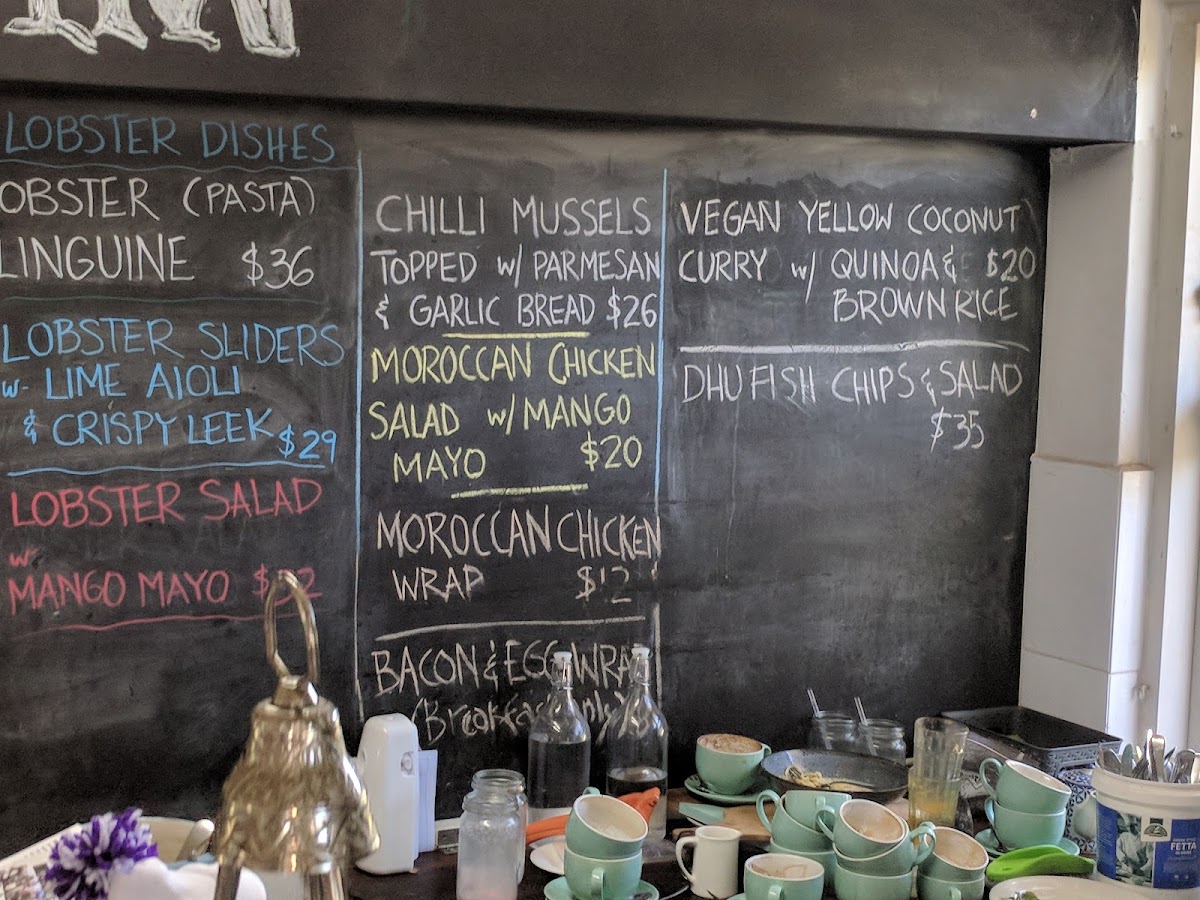 LOBSTER DISHES
LOBSTER (PASTA)
LINGUINE $36
LOBSTER SLIDERS
w- LIME AIOLI
& CRISPY LEEK $29
LOBSTER SALAD
w-
MANGO MAYO
CHILLI MUSSELS
TOPPED w/ PARMESAN
& GARLIC BREAD $26
MOROCCAN CHICKEN
SALAD w/ MANGO
MAYO $20
MOROCCAN CHICKEN
WRAP $12
BACON & EGG WRAP
(Breakfast only)
VEGAN YELLOW COCONUT
CURRY w/ QUINOA & $20
BROWN RICE
DHUFISH CHIPS & SALAD
$35
FETTA